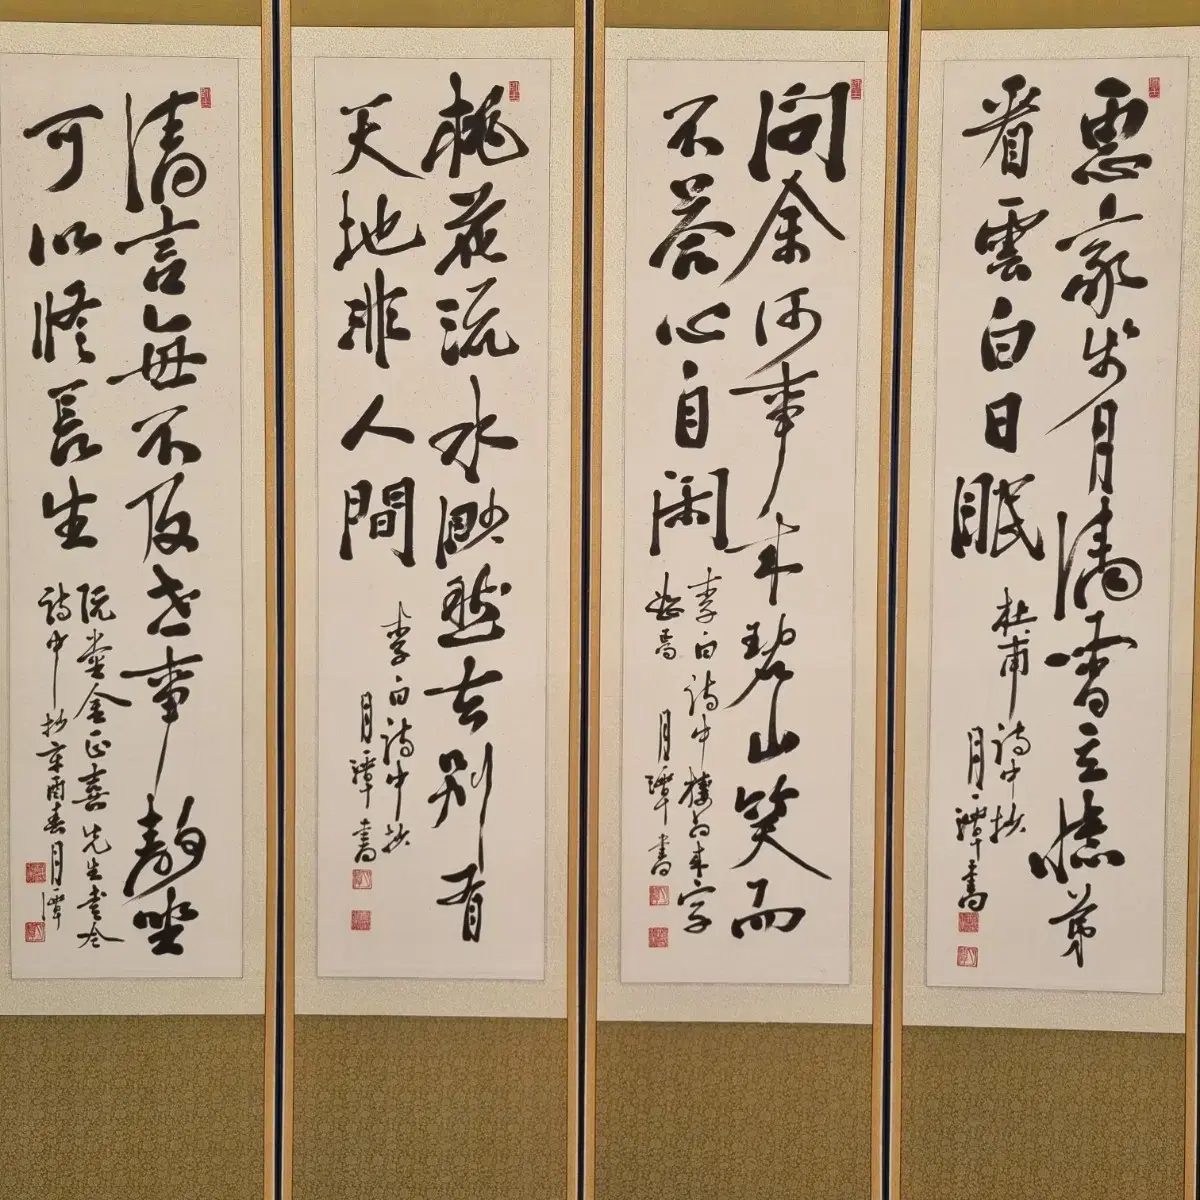 思家步月清宵立憶弟
看雲白日眠
杜甫詩中抄
月潭書
問余何事来碧山笑而
不答心自閑
李白詩中棲為来字
焉 月潭書
桃花流水渺然去別有
天地非人間
李白詩中抄
月潭書
清言每不及世事靜坐
可以修長生
阮堂金正喜先生書
詩中抄辛酉春月潭